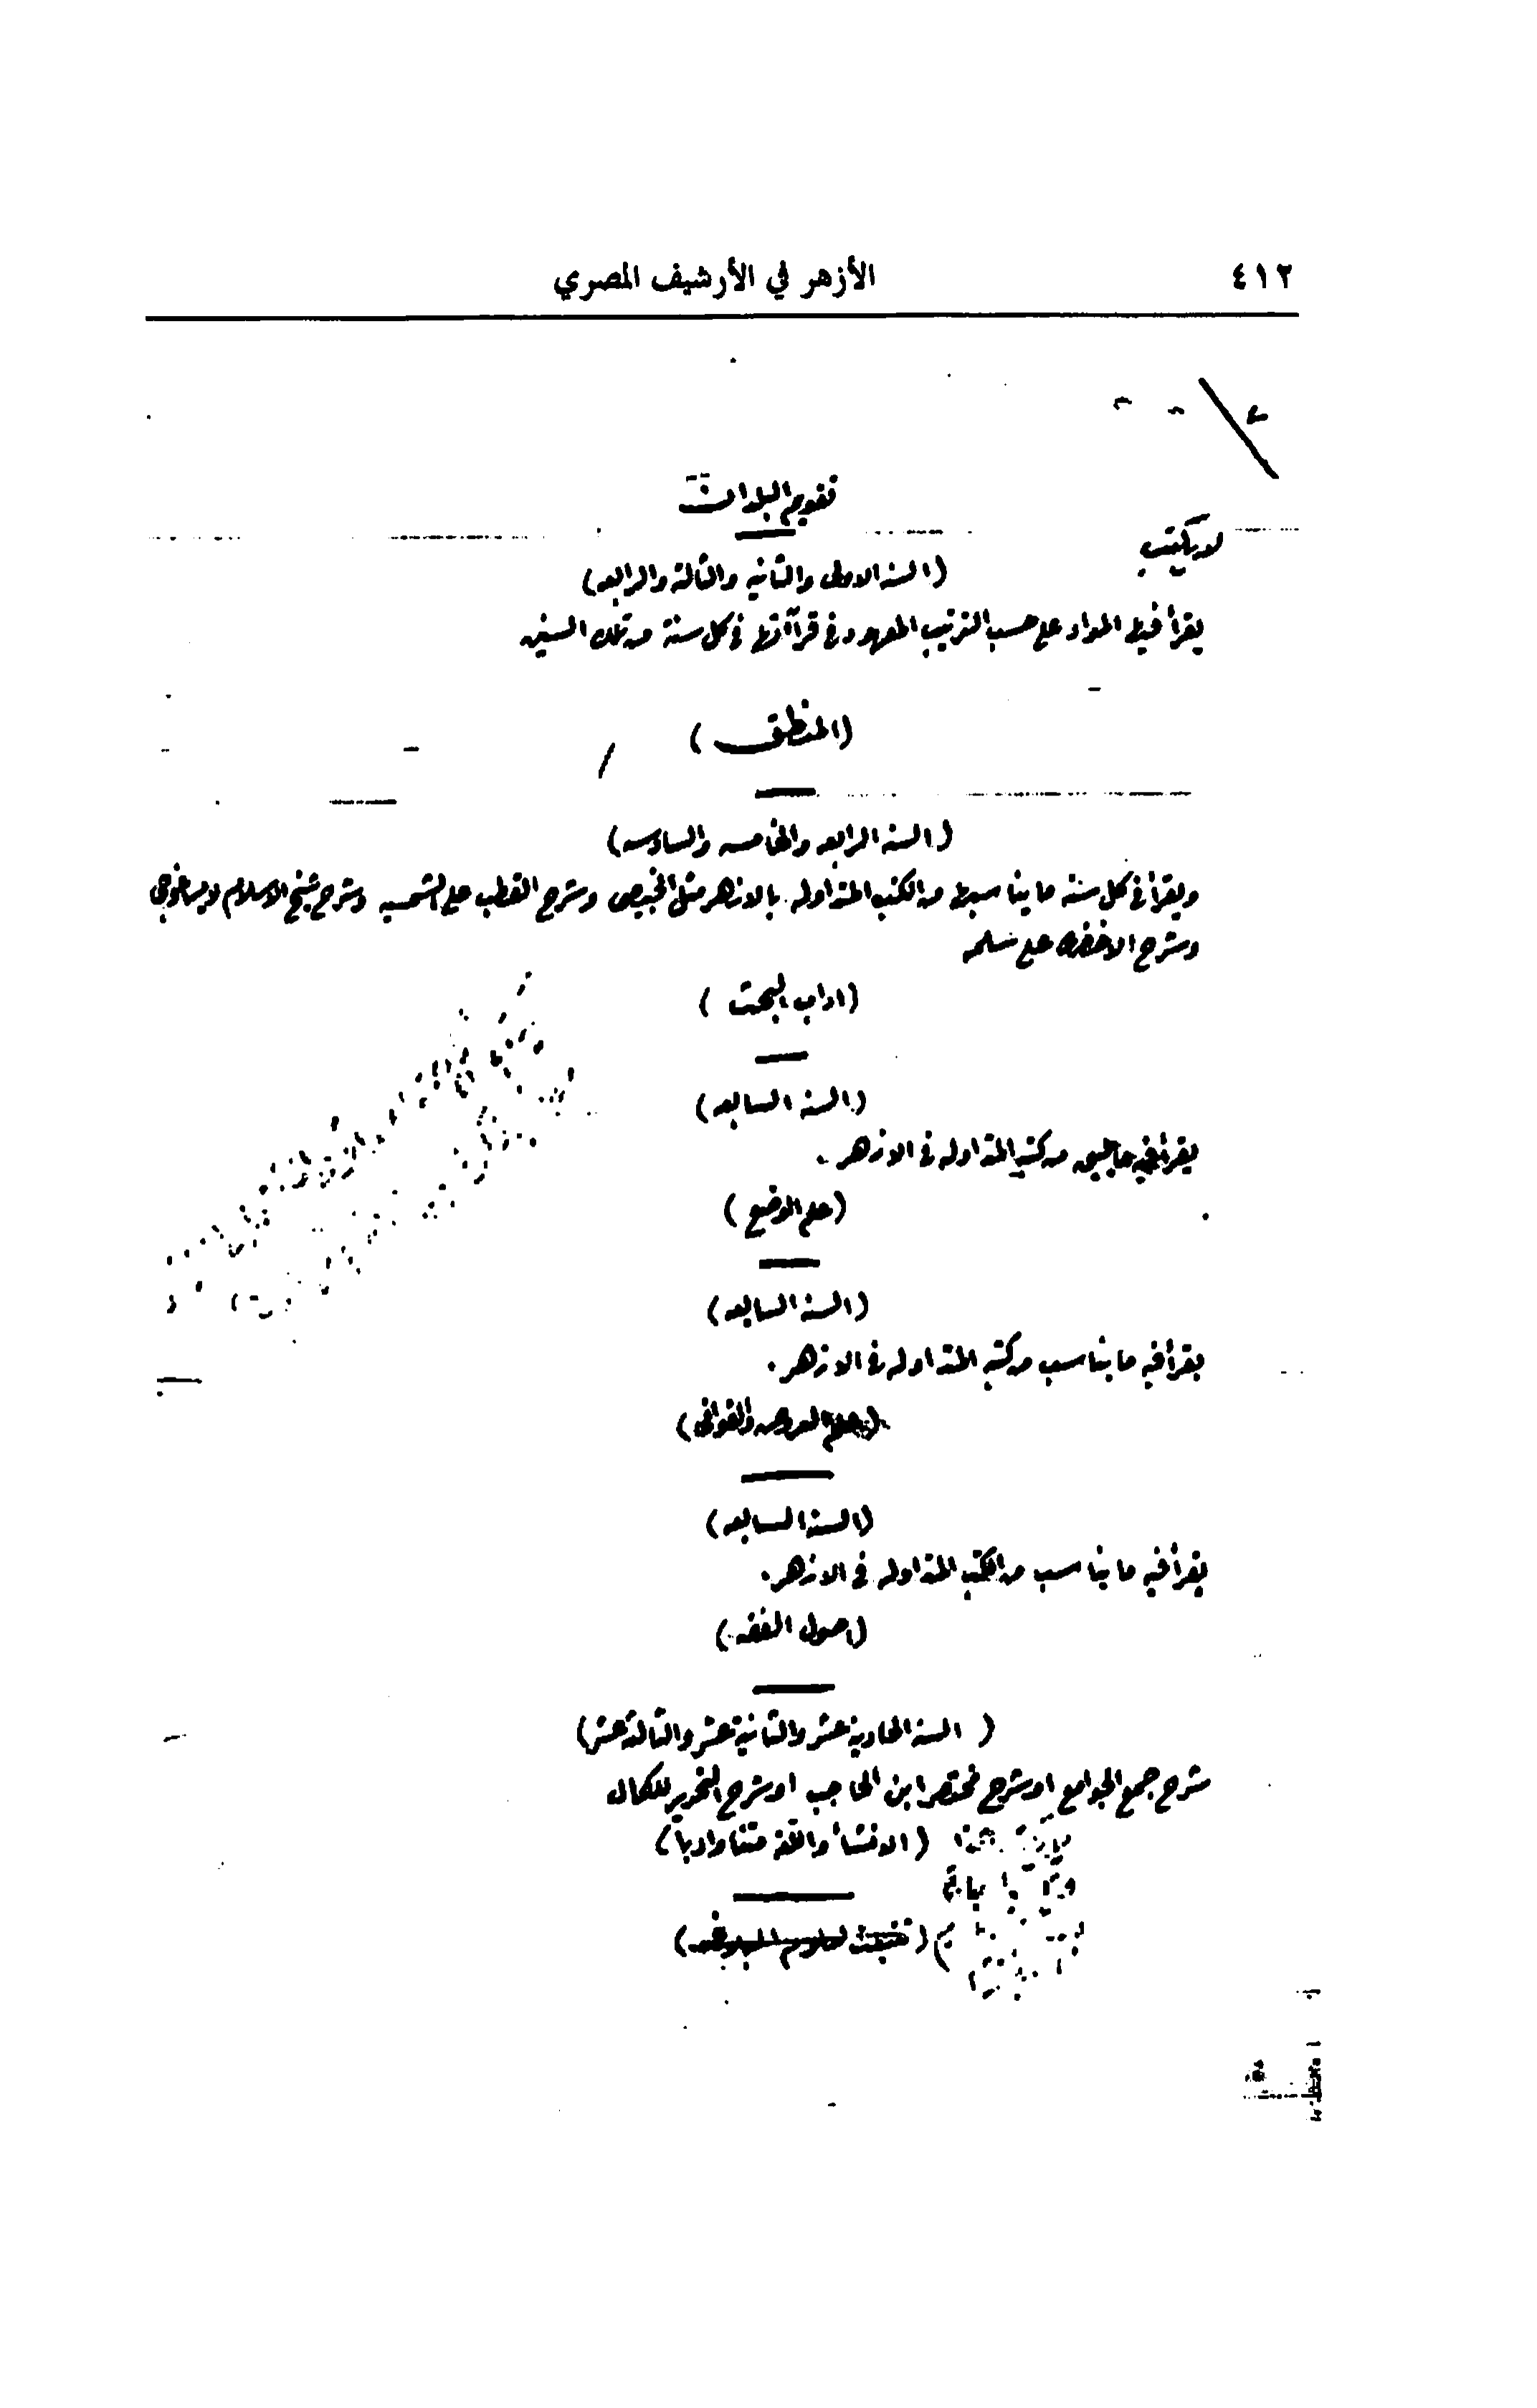 ٤١٢
الأزهر في الأرشيف المصري
تقويم البلدان
لا يكتب
(السنة الاولى والثانيه والثالثة والرابعه)
يقرأ فيها المواد على حسب الترتيب المعهود في قرآأتها في كل سنة من تلك السنين
(المنطق)
(السنة الرابعه والخامسه والسادسه)
ويقرأ في كل سنة ما يناسبها من الكتب المتداوله بالازهر مثل الخبيصى وشرح القطب على الشمسيه وشرح شيخ الاسلام لايساغوجى
وشرح الاخضرى على سلمه
(اداب البحث)
(السنة السابعه)
يقرأ فيه ما يناسب من كتبه المتداوله في الازهر.
(علم الوضع)
(السنة السابعه)
يقرأ فيه ما يناسب من كتبه المتداوله في الازهر.
(علم العروض والقوافى)
(السنة السابعه)
يقرأ فيه ما يناسب من الكتب المتداوله فى الازهر.
(اصول الفقه)
(السنة الحادية عشر والثانية عشر والثالثة عشر)
شرح جمع الجوامع او شرح مختصر ابن الحاجب او شرح التحرير للكمال
(الانشأ واللغة متنا وادبا)